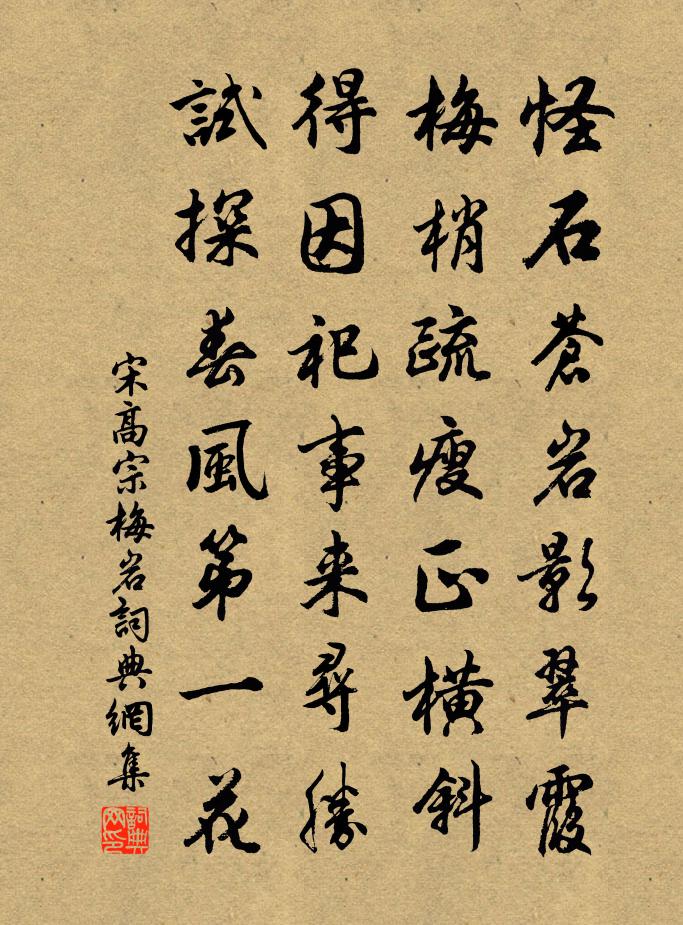 怪石蒼岩影翠霞
梅梢疏瘦正橫斜
得因祀事来尋勝
試探春風第一花
宋高宗梅岩詞典網集
詞典網印